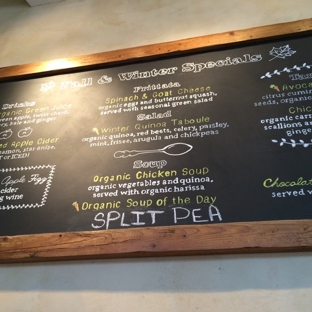 Fall & Winter Specials
Drinks
Organic Green Juice
Apple Cider
Apple Fizz
cider
wine
Frittata
Spinach & Goat Cheese
organic eggs and butternut squash,
served with seasonal green salad
Salad
Winter Quinoa Taboule
organic quinoa, red beets, celery, parsley,
mint, frisee, arugula and chickpeas
Soup
Organic Chicken Soup
organic vegetables and quinoa,
served with organic harissa
Organic Soup of the Day
SPLIT PEA
Avoca
citrus cumin
seeds, organic
Chick
organic car
scallions a
ginger
Chocolat
served w